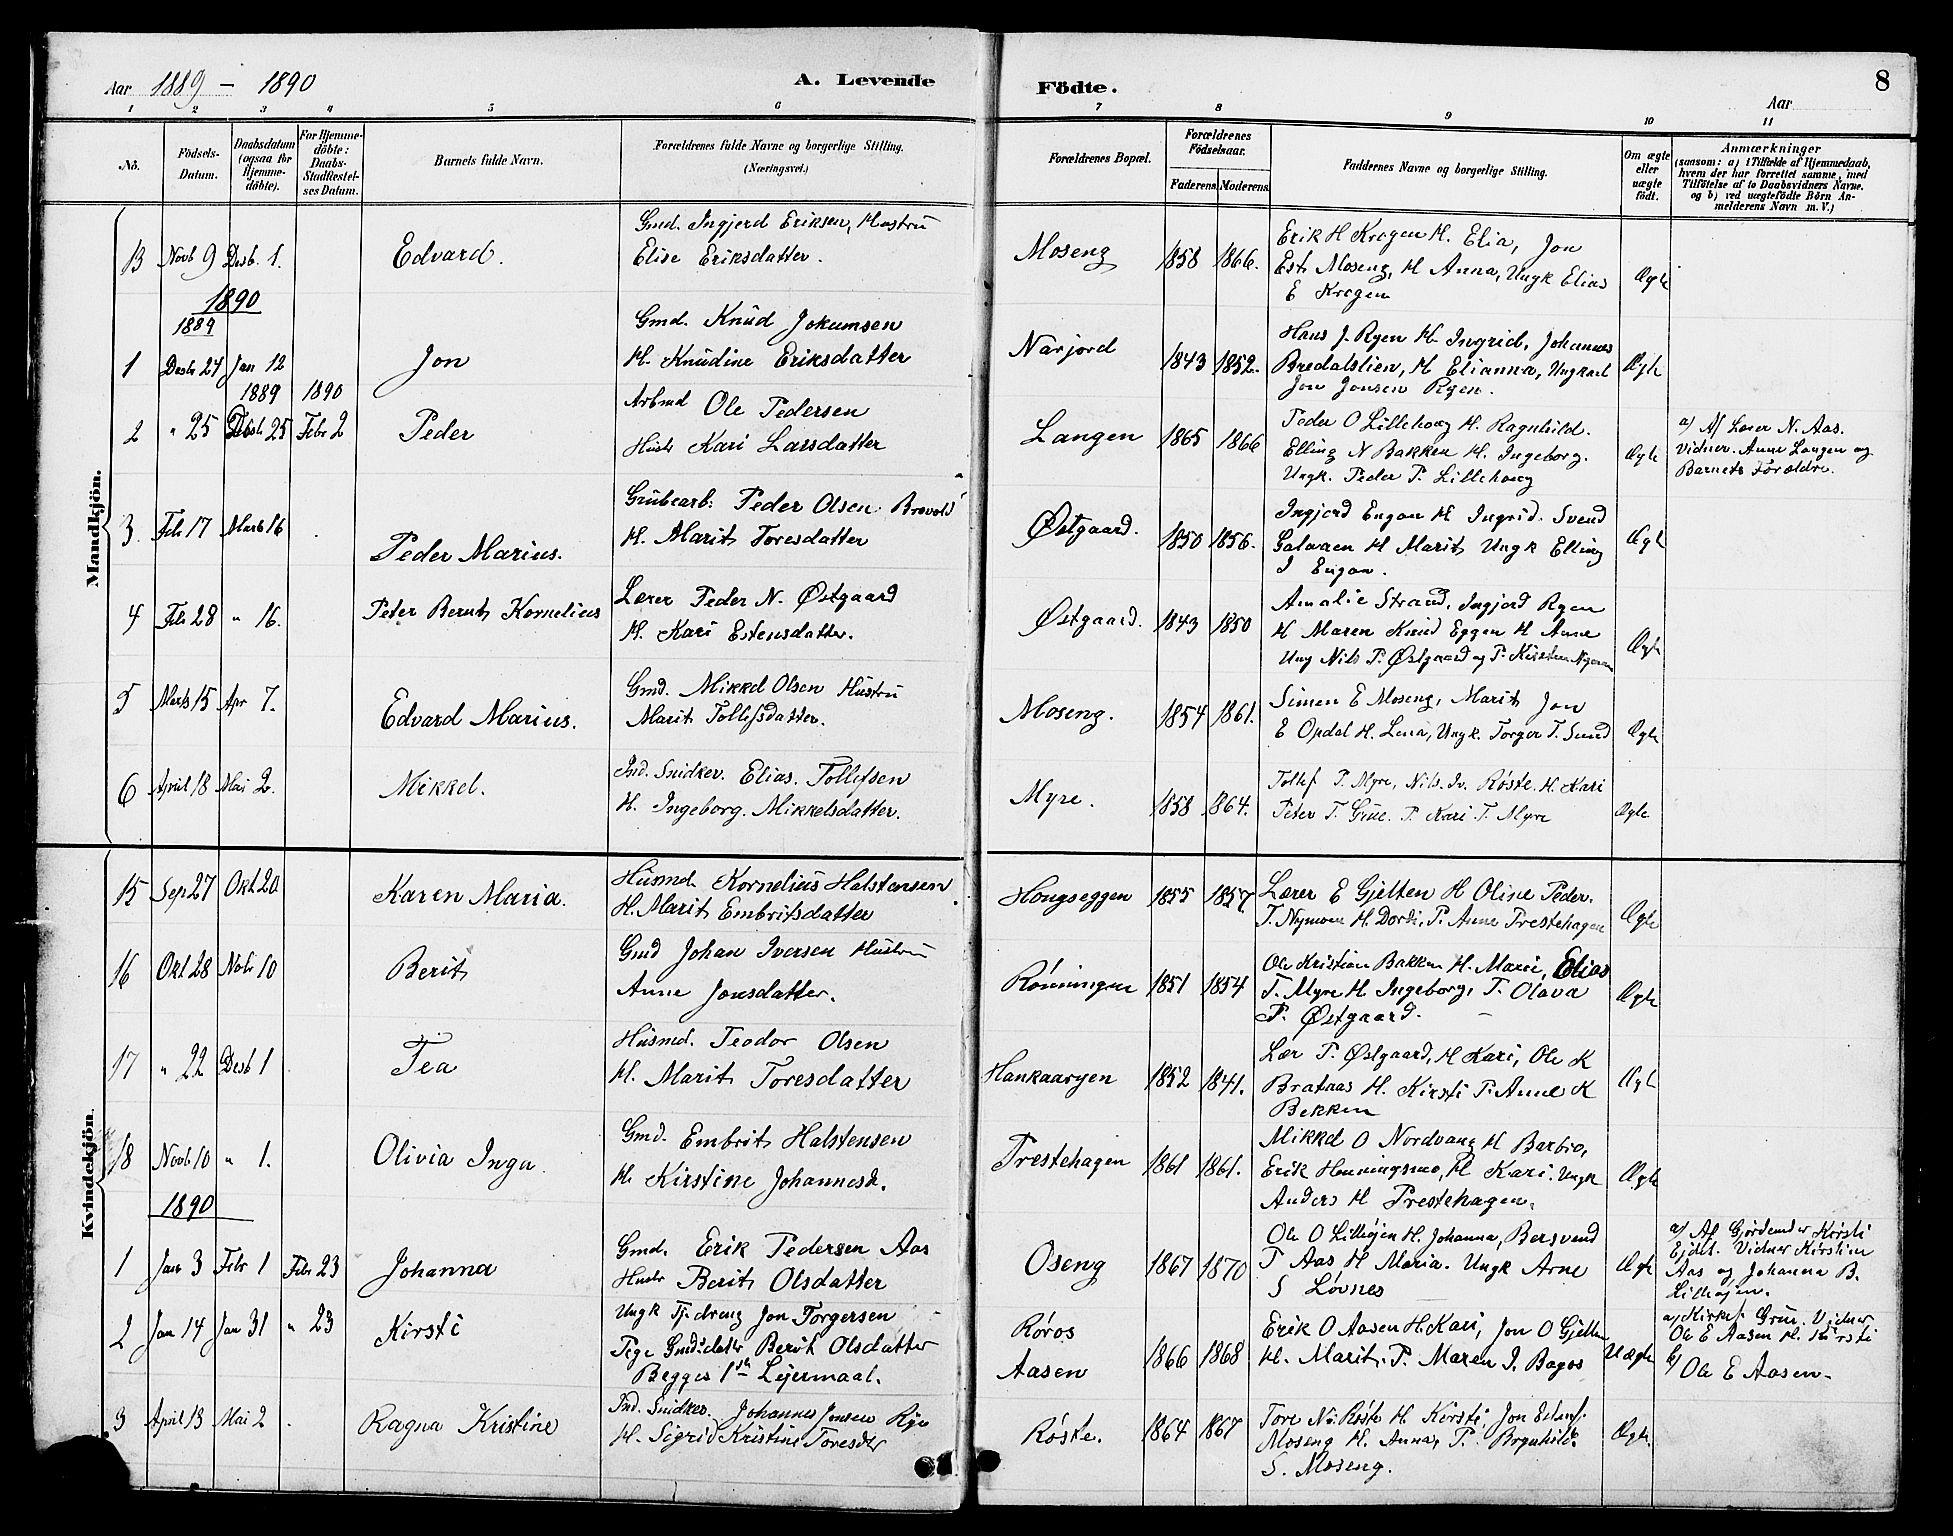 Aar 1889 – 1890
A. Levende
Födte.
Aar
8
1 2 3 4 5 6 7 8 9 10 11
No.
Födsels-Datum.
Daabsdatum (ogsaa for Hjemme-döbte).
For Hjemme-döbte: Daabs-Stadfæstel-ses Datum.
Barnets fulde Navn.
Forældrenes fulde Navne og borgerlige Stilling.
(Næringsvei.)
Forældrenes Bopæl.
Forældrenes Födselsaar.
Faderens. Moderens.
Faddernes Navne og borgerlige Stilling.
Om ægte eller uægte födt.
Anmærkninger
(saasom: a) i Tilfælde af Hjemmedaab,
hvem der har forrettet samme, med
Tilföielse af to Daabsvidners Navne.
og b) ved uægtefödte Börn An-
melderens Navn m. V.)
Mandkjön.
13 Novb 9 Desb. 1. Edvard. Gmd. Ingjerd Eriksen, Hustru
Elise Eriksdatter.
Moseng 1858 1866. Erik H Krogen H. Elia, Jon
Est. Moseng, H Anna, Ungk Elias
E Krogen
Ægte
1890
1889
1 Desb 24 Jan 12 Jon Gmd. Knud Jokumsen
H. Knudine Eriksdatter
Narjord 1843 1852. Hans J. Ryen H. Ingrid, Johannes
Bredalslien, H Elianna, Ungkarl
Jon Jonsen Ryen.
Ægte
1889 1890
2 " 25 Desb 25 Febr 2 Peder Arbmd Ole Pedersen
Hustr Kari Larsdatter
Langen 1865 1866 Peder O Lillehoug H. Ragnhild.
Elling N Bakken H. Ingeborg.
Ungk. Peder P. Lillehoug
Ægte a/ Af Lærer N. Aas.
Vidner. Anne Langen og
Barnets Forældre.
3 Feb 17 Marts 16 Peder Marius. Grubearb: Peder Olsen Brovold
H. Marit Toresdatter
Østgaard. 1850 1856. Ingjerd Engan H Ingrid. Svend
Galaaen H Marit Ungk Elling
I Engan.
Ægte
4 Feb 28 " 16. Peter Bernt Kornelius Lærer Peder N. Østgaard
H. Kari Estensdatter.
Østgaard. 1843 1850 Amalie Strand, Ingjerd Ryen
H Maren Knud Eggen H Anne
Ung Nils P. Østgaard og P. Kirsten Nymoen
Ægte
5 Marts 15 Apr 7. Edvard Marius. Gmd. Mikkel Olsen Hustru
Marit Tollefsdatter.
Moseng. 1854 1861. Simen E Moseng, Marit Jon
E Opdal H. Lena, Ungk. Torger T. Sund
Ægte
6 April 18 Mai 2. Mikkel. Ind. Snidker. Elias. Tollefsen
H. Ingeborg. Mikkelsdatter.
Myre. 1858 1864. Tollef P. Myre, Nils. Iv. Røste. H. Kari
Peter T. Grue. P. Kari. T. Myre
Ægte
Kvindekjön.
15 Sep 27 Okt 20 Karen Maria. Husmd. Kornelius Halstensen
H. Marit Embritsdatter
Hougseggen 1855 1857 Lærer E Gjelten H Oline Peder.
T. Nymoen H. Dordi, P. Anne Prestehagen
Ægte
16 Okt 28 Novb 10 Berit Gmd Johan Iversen Hustru
Anne Jonsdatter.
Rønningen 1851 1854 Ole Kristian Bakken H. Marie, Elias
T. Myre H Ingeborg, P. Olava
P. Østgaard.
Ægte
17 " 22 Desb 1 Tea Husmd. Teodor Olsen
H. Marit Toresdatter
Hankaaryen 1852 1841. Lær P. Østgaard, H Kari, Ole K
Brataas H. Kirsti P. Anne K
Bekken
Ægt
18 Novb 10 " 1. Olivia Inga Gmd. Embrit Halstensen
H. Kirstine Johannesd.
Prestehagen 1861 1861. Mikkel O Nordvang H Barbro,
Erik Henningsmo, H Kari. Ungk
Anders H Prestehagen.
Ægte
1890
1 Jan 3 Febr 1 Febr 23 Johanna Gmd. Erik Pedersen Aas
Hustr Berit Olsdatter
Oseng 1867 1870 Ole O Lilløjen H. Johanna, Bersvend
P Aas H Maria. Ungk Arne
S Løvnes
Ægte a/ Af Gjordemder Kirsti
Ejdet. Vidner Kirstien
Aas og Johanna B.
Lilløjen.
2 Jan 14 Jan 31 " 23 Kirsti Ungk Tj.dreng Jon Torgersen
Pige Gmdsdatter Berit Olsdatter
Begges 1ste Lejermaal.
Røros
Aasen
1866 1868 Erik O Aasen H. Kari, Jon O Gjelten
H. Marit. P. Maren J. Bagos
Uægte a/ Kirkes. Grue. Vidner
Ole E Aasen H. Kirsti
b/ Ole E Aasen.
3 April 13 Mai 2 Ragna Kristine Ind. Snidker. Johannes Jonsen Rye
H. Sigrid Kristine Toresdtr
Røste. 1864 1867 Tore N. Røste H. Kirsti, Jon Estens.
Moseng H. Anna, P. Brynhild
S. Moseng.
Ægte.